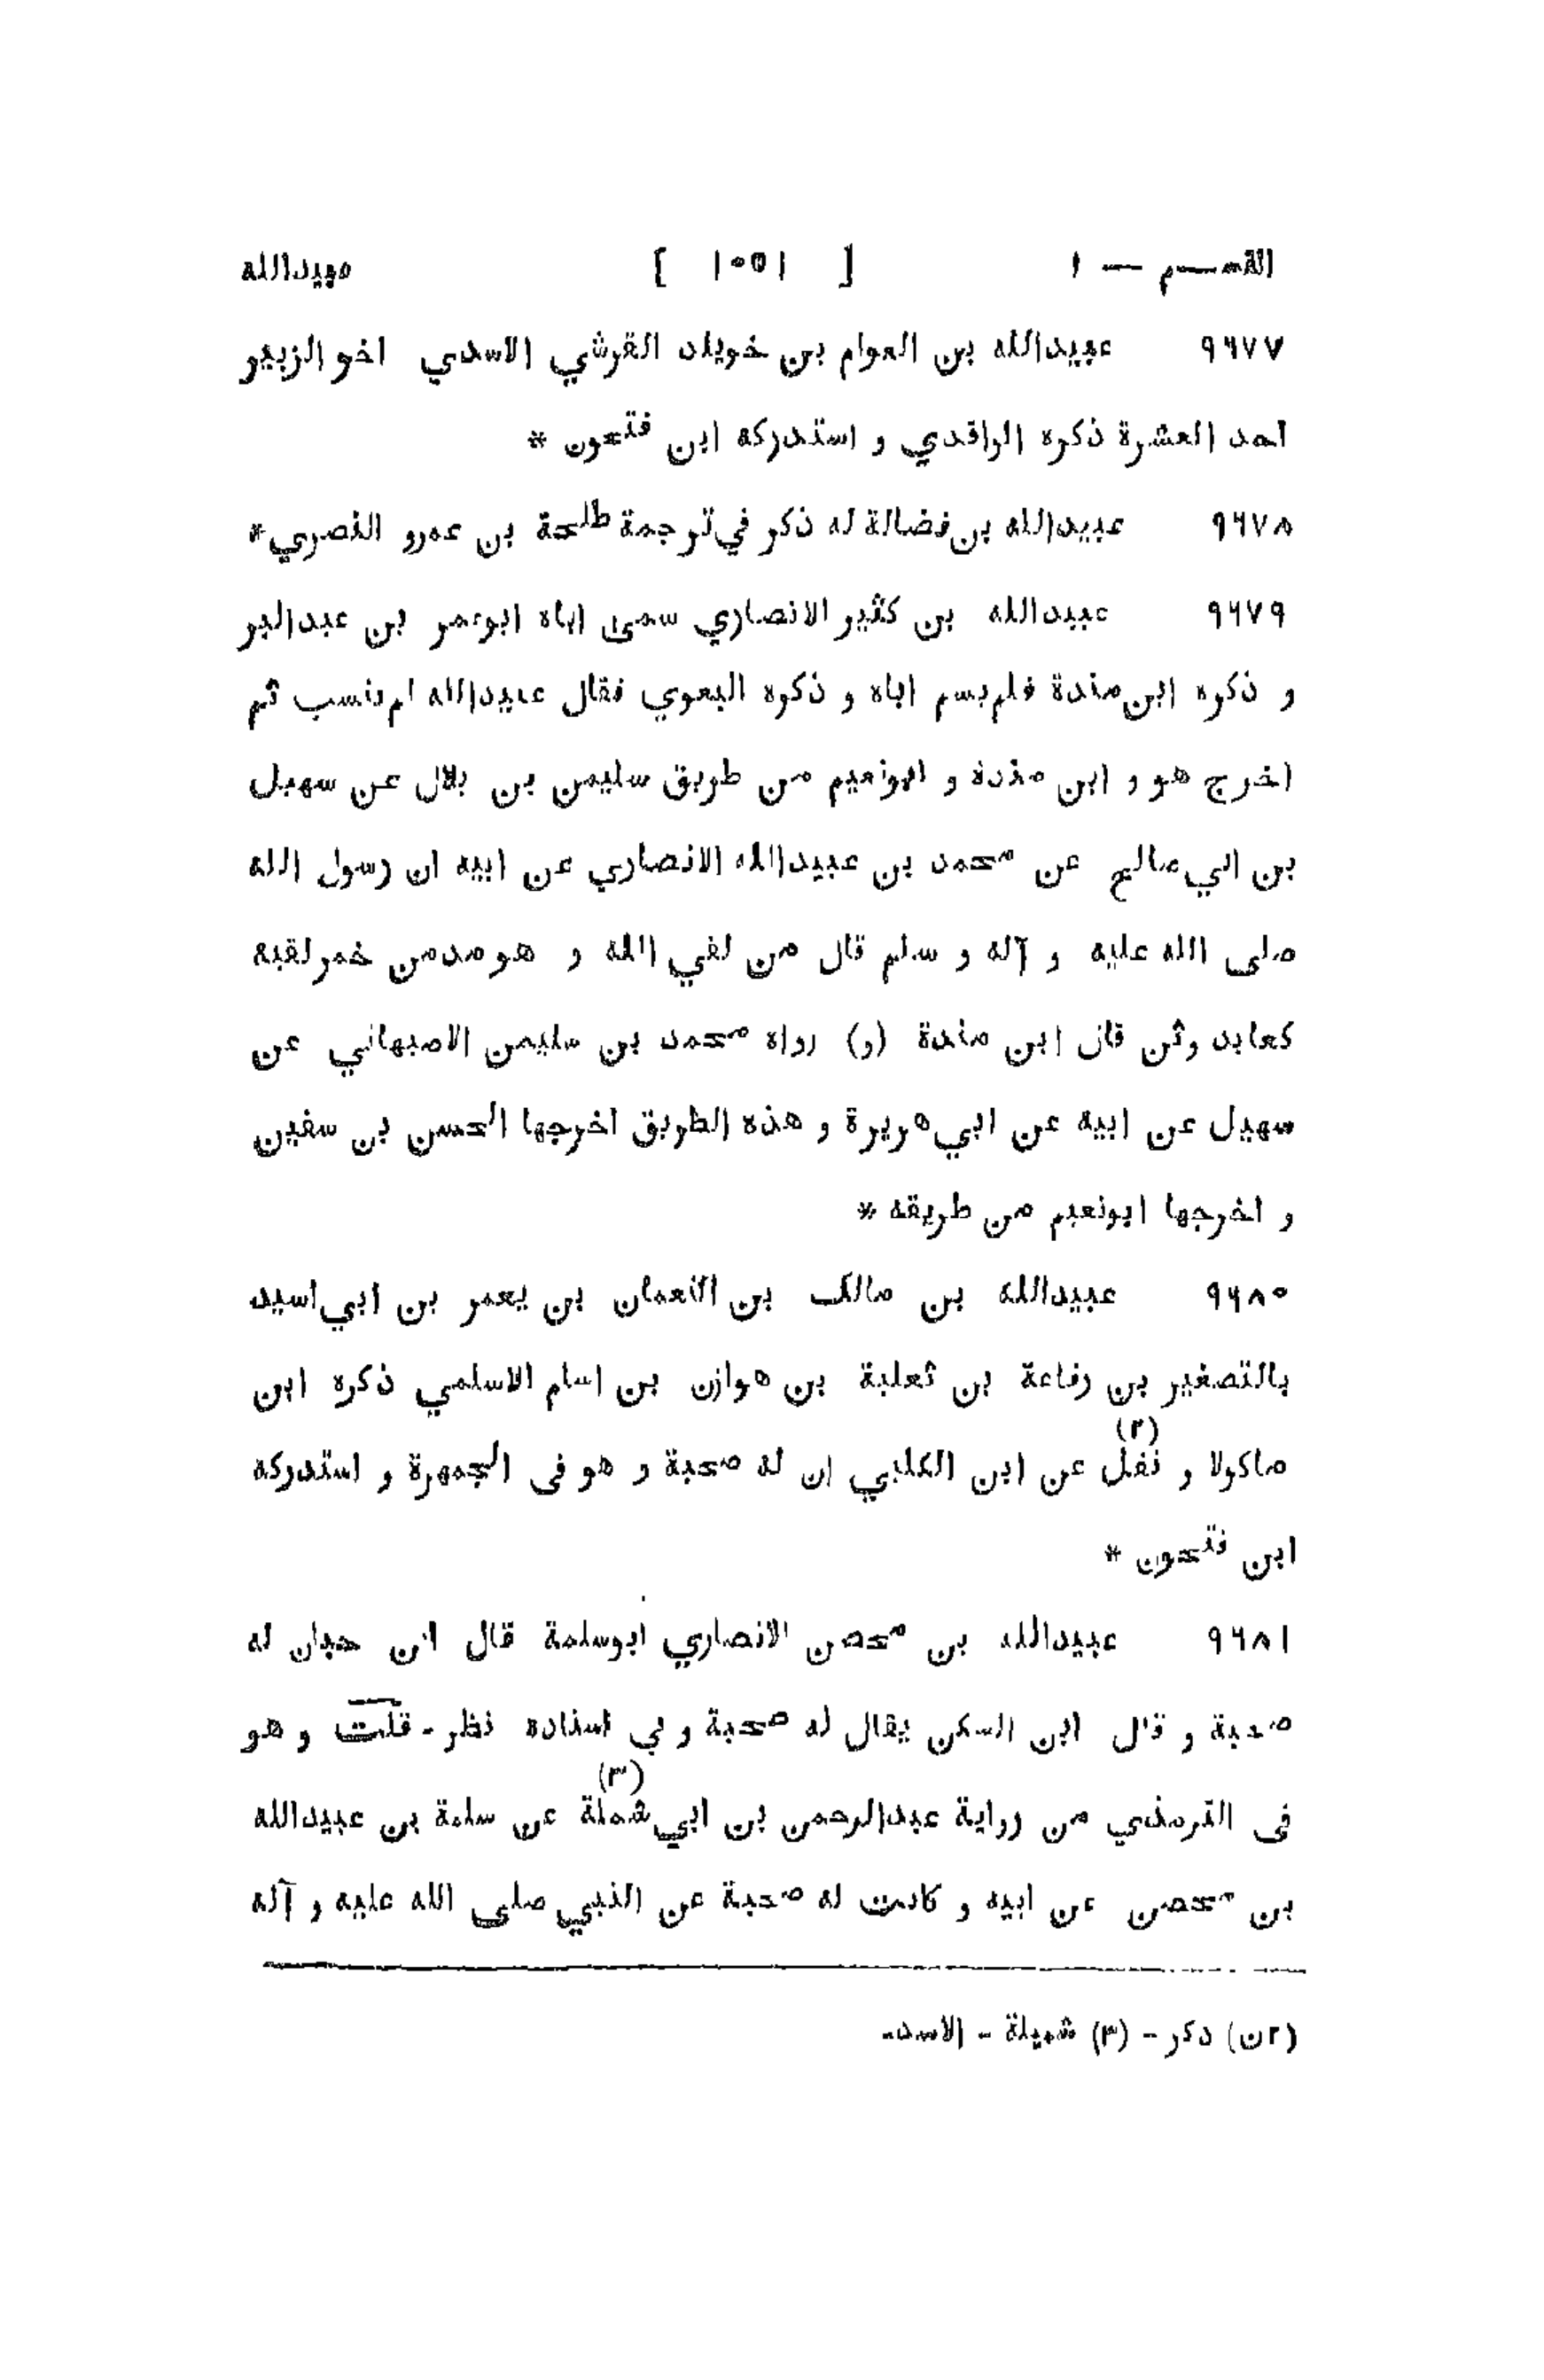 القسم — ١ [ ١٠٥١ ] عبيدالله
٩٦٧٧ عبيدالله بن العوام بن خويلد القرشي الاسدي اخو الزبير
احد العشرة ذكره الواقدي و استدركه ابن فتحون *
٩٦٧٨ عبيدالله بن فضالة له ذكر في ترجمة طلحة بن عمرو النصري *
٩٦٧٩ عبيدالله بن كثير الانصاري سمى اباه ابو عمر بن عبدالبر
و ذكره ابن مندة فلم يسم اباه و ذكره البغوي فقال عبيدالله لم ينسب ثم
اخرج هو و ابن مندة و ابونعيم من طريق سليمن بن بلال عن سهيل
بن ابي صالح عن محمد بن عبيدالله الانصاري عن ابيه ان رسول الله
صلى الله عليه و آله و سلم قال من لقي الله و هو مدمن خمر لقيه
كعابد وثن قال ابن مندة (و) رواه محمد بن سليمن الاصبهاني عن
سهيل عن ابيه عن ابي هريرة و هذه الطريق اخرجها الحسن بن سفين
و اخرجها ابونعيم من طريقه *
٩٦٨٠ عبيدالله بن مالك بن النعمان بن يعمر بن ابي اسيد
بالتصغير بن رفاعة بن ثعلبة بن هوازن بن اسلم الاسلمي ذكره ابن
ماكولا و نقل (٢) عن ابن الكلبي ان له صحبة و هو فى الجمهرة و استدركه
ابن فتحون *
٩٦٨١ عبيدالله بن محصن الانصاري ابوسلمة قال ابن حبان له
صحبة و قال ابن السكن يقال له صحبة و في اسناده نظر - قلت و هو
فى الترمذي من رواية عبدالرحمن بن ابي شملة (٣) عن سلمة بن عبيدالله
بن محصن عن ابيه و كانت له صحبة عن النبي صلى الله عليه و آله
(٢ن) ذكر - (٣) شميلة - الاسد-